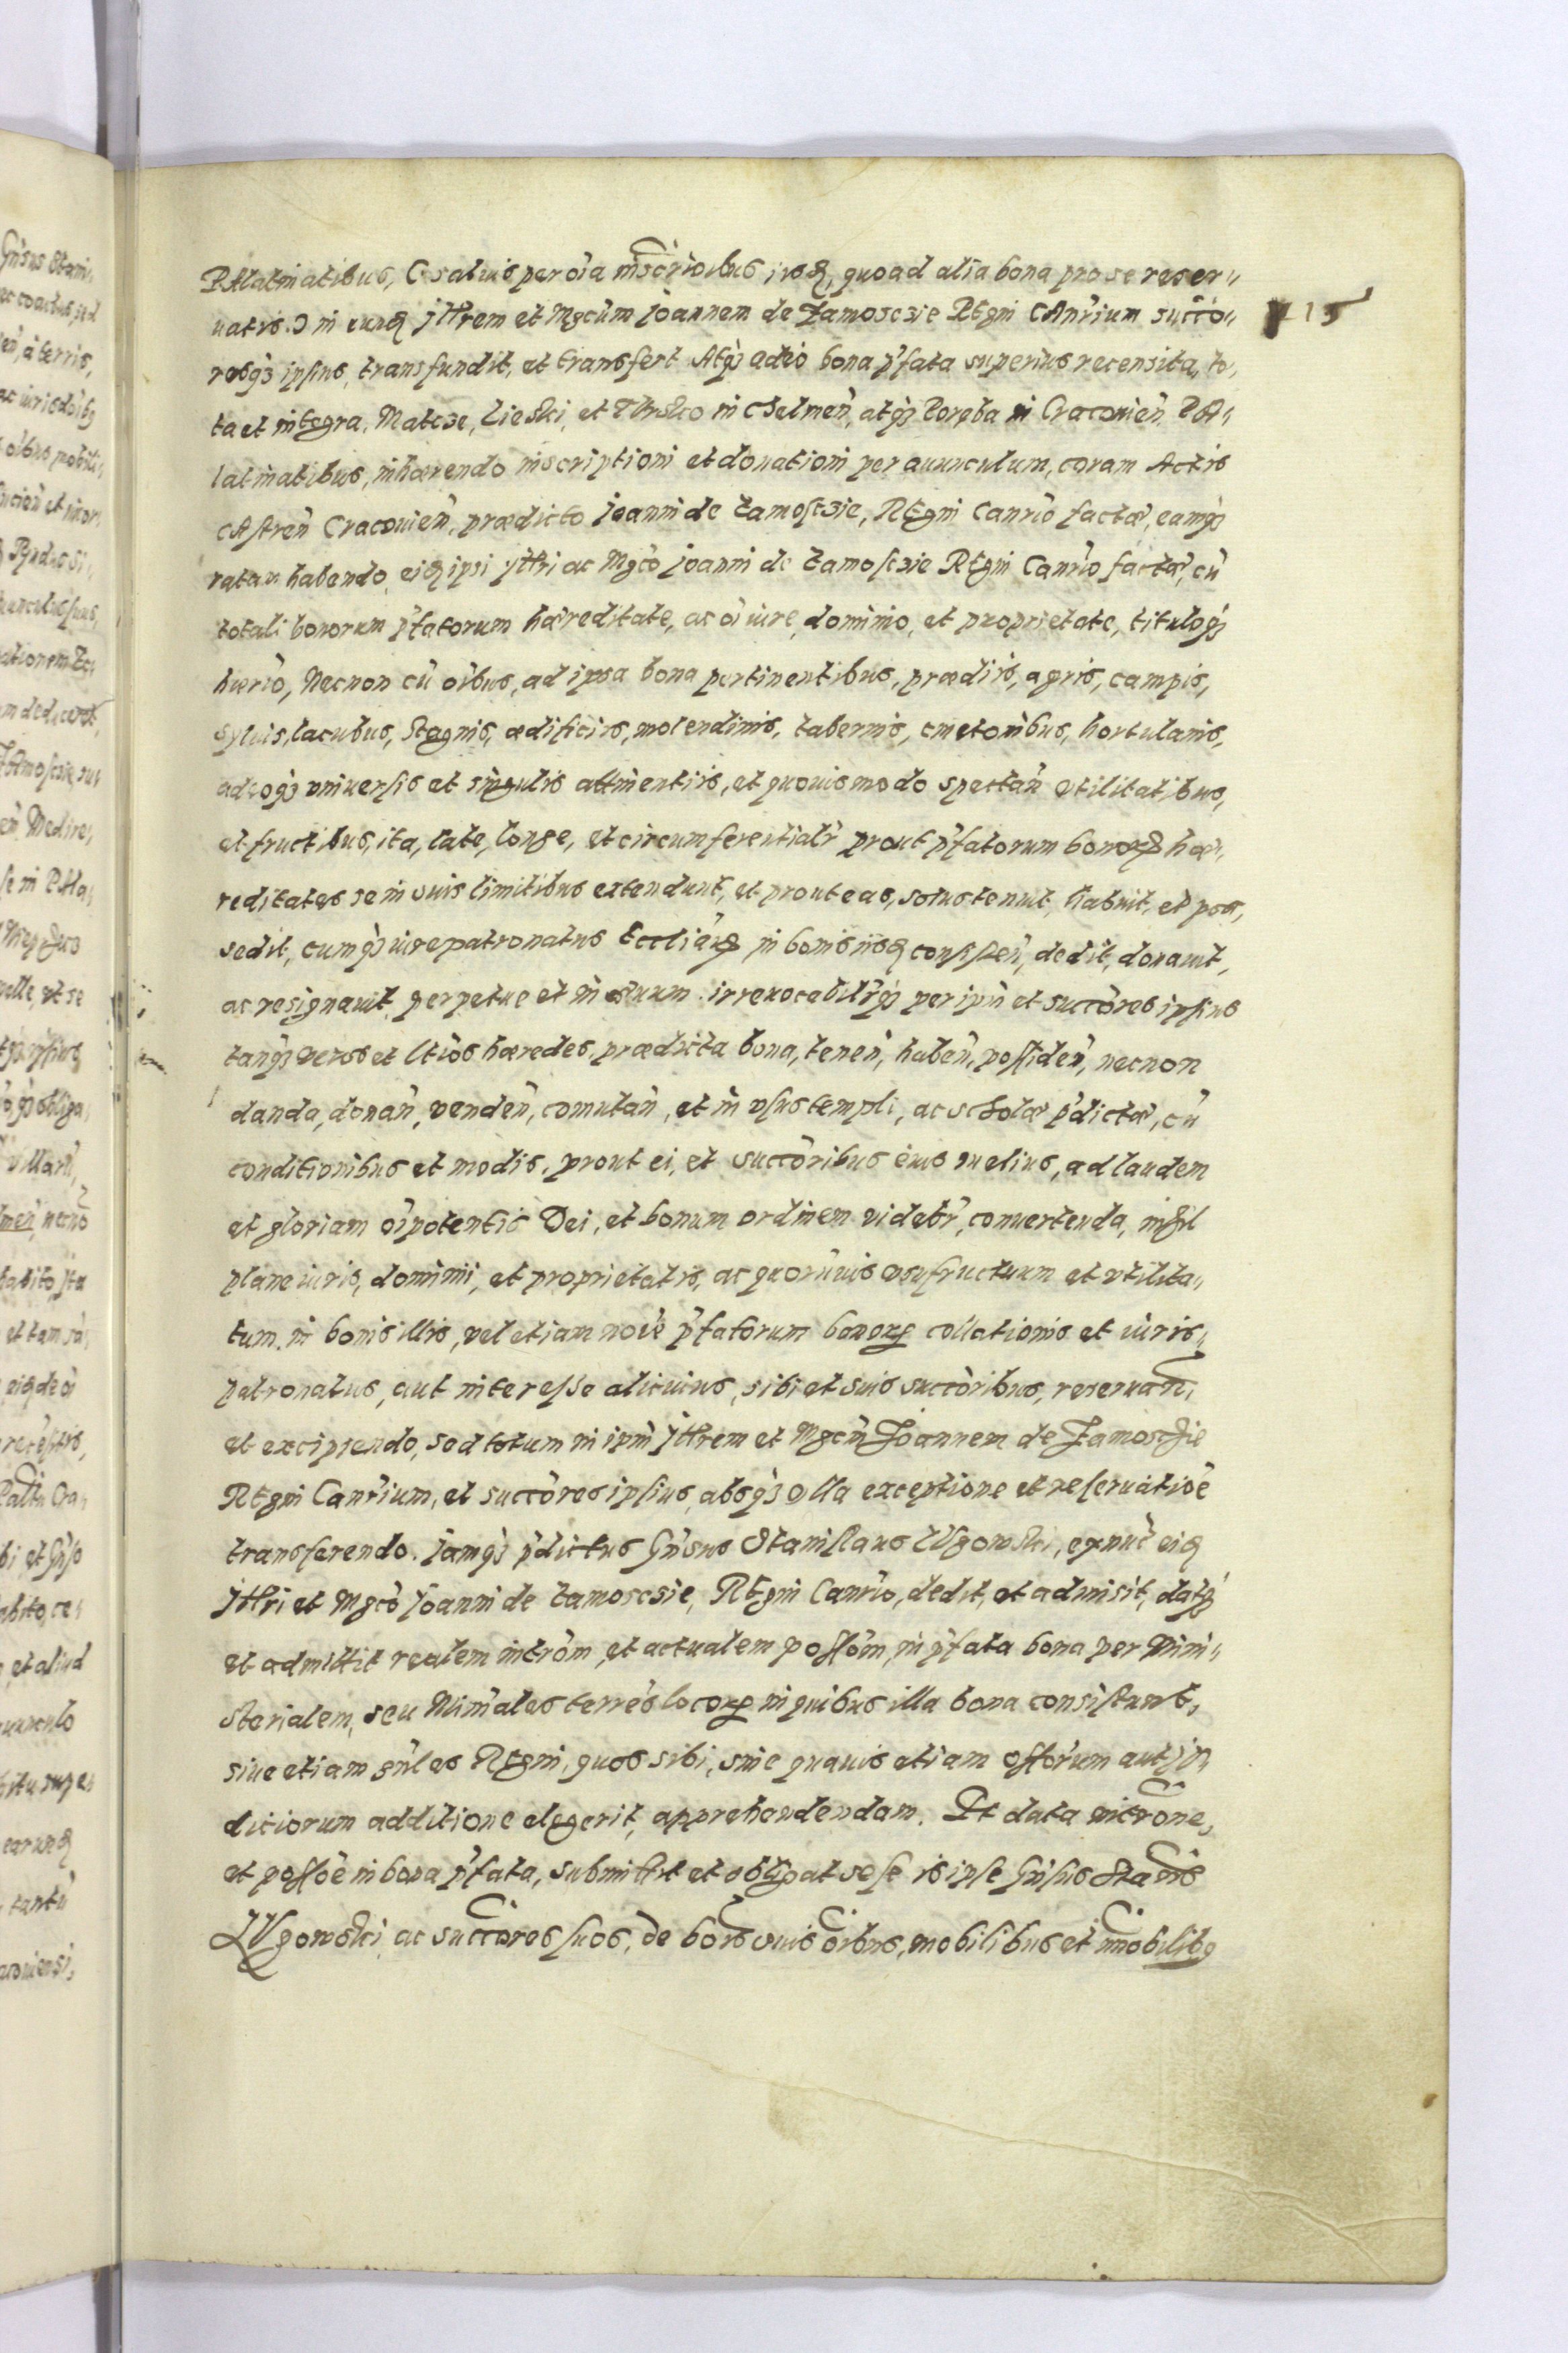 PAlatinatibus, C salvis per oīa inscriōnibus iisdē, quoad alia bona pro se reser„
15
uatis. Ɔ in eundē Jllrem et Mgcūm Joannem de Zamosczie REgni CAnrium succo„
resq3 ipsius, transfundit, et transfert Atq3 adeo bona p̄fata superius recensita, to„
ta et integra, Matcze, Lieski, et in Chelmeñ, atq3 Poręba in Cracouieñ PA„
latinatibus, inhærendo inscriptioni et donationi per auunculum, coram Actis
cAstreñ Cracouieñ, prædicto Joanni de Zamosczie, REgni Canrio factæ, eamq3
ratam habendo, eidē ipsi Jllri ac Mgco Joanni de Zamosczie REgni Canrio factæ, cū
totali bonorum p̄fatorum hæreditate, ac oī iure, dominio, et proprietate, tituloq3
hærio, Necnon cū oībus, ad ipsa bona pertinentibus, prædiis, agris, campis,
syluis, lacubus, Stagnis, ædificiis, molendinis, tabernis, cmetonibus, hortulanis,
adeoq3 vniuersis et singulis attinentiis, et quouismodo spectañ vtilitatibus,
et fructibus, ita, late, longe, et circumferentialr prout p̄fatorum bonorꝝ hæ„
reditates se in suis limitibus extendunt, et prout eas, solus tenuit, habuit, et pos„
sedit, cumq3 iure patronatus Eccliarꝝ in bonis iisdē consisteñ, dedit, donauit,
ac resignauit, perpetue et in æuum. irreuocabilrq3 per ipm et succores ipsius
tanq3 veros et Ltios hæredes, prædicta bona, teneñ, habeñ, possideñ, necnon
danda, donañ, vendeñ, comutañ, et in vsus templi, ac scholæ p̄dictæ, cū
conditionibus et modis, prout ei, et succoribus eius melius, ad laudem
et gloriam oīpotentis Dei, et bonum ordinem videbr, conuertenda, nihil
plane iuris, dominii, et proprietatis, ac quorumuis vsufructuum et vtilita„
tum, in bonis illis, vel etiam noīe p̄fatorum bonorꝝ collationis et iuris„
patronatus, aut interesse alicuius, sibi et suis succoribus, reseruañ,
et excipiendo, sed totum in ipm Jllrem et Mgcm Joannem de Zamosczie
REgni Canrium, et succores ipsius, absq3 vlla exceptione et reseruatioē
transferendo. Jamq3 p̄dictus Gñsus Stanislaus Wgowski, exnūc eidē
Jllri et Mgco Joanni de Zamosczie, REgni Canrio, dedit, et admisit, datq3
et admittit realem introm, et actualem possom, in p̄fata bona per Mini„
sterialem, seu Minales terres locorꝝ in quibus illa bona consistunt,
siue etiam gñles REgni, quos sibi, sine quauis etiam offorum aut iu„
diciorum additione elegerit, apprehendendam. Et data introne,
et possoē in bona p̄fata, submittit et obligat sese is ipse Gñsus Stanis
Wgowski, ac succores suos, de bonis suis oībus, mobilibus et immobilibꝯ